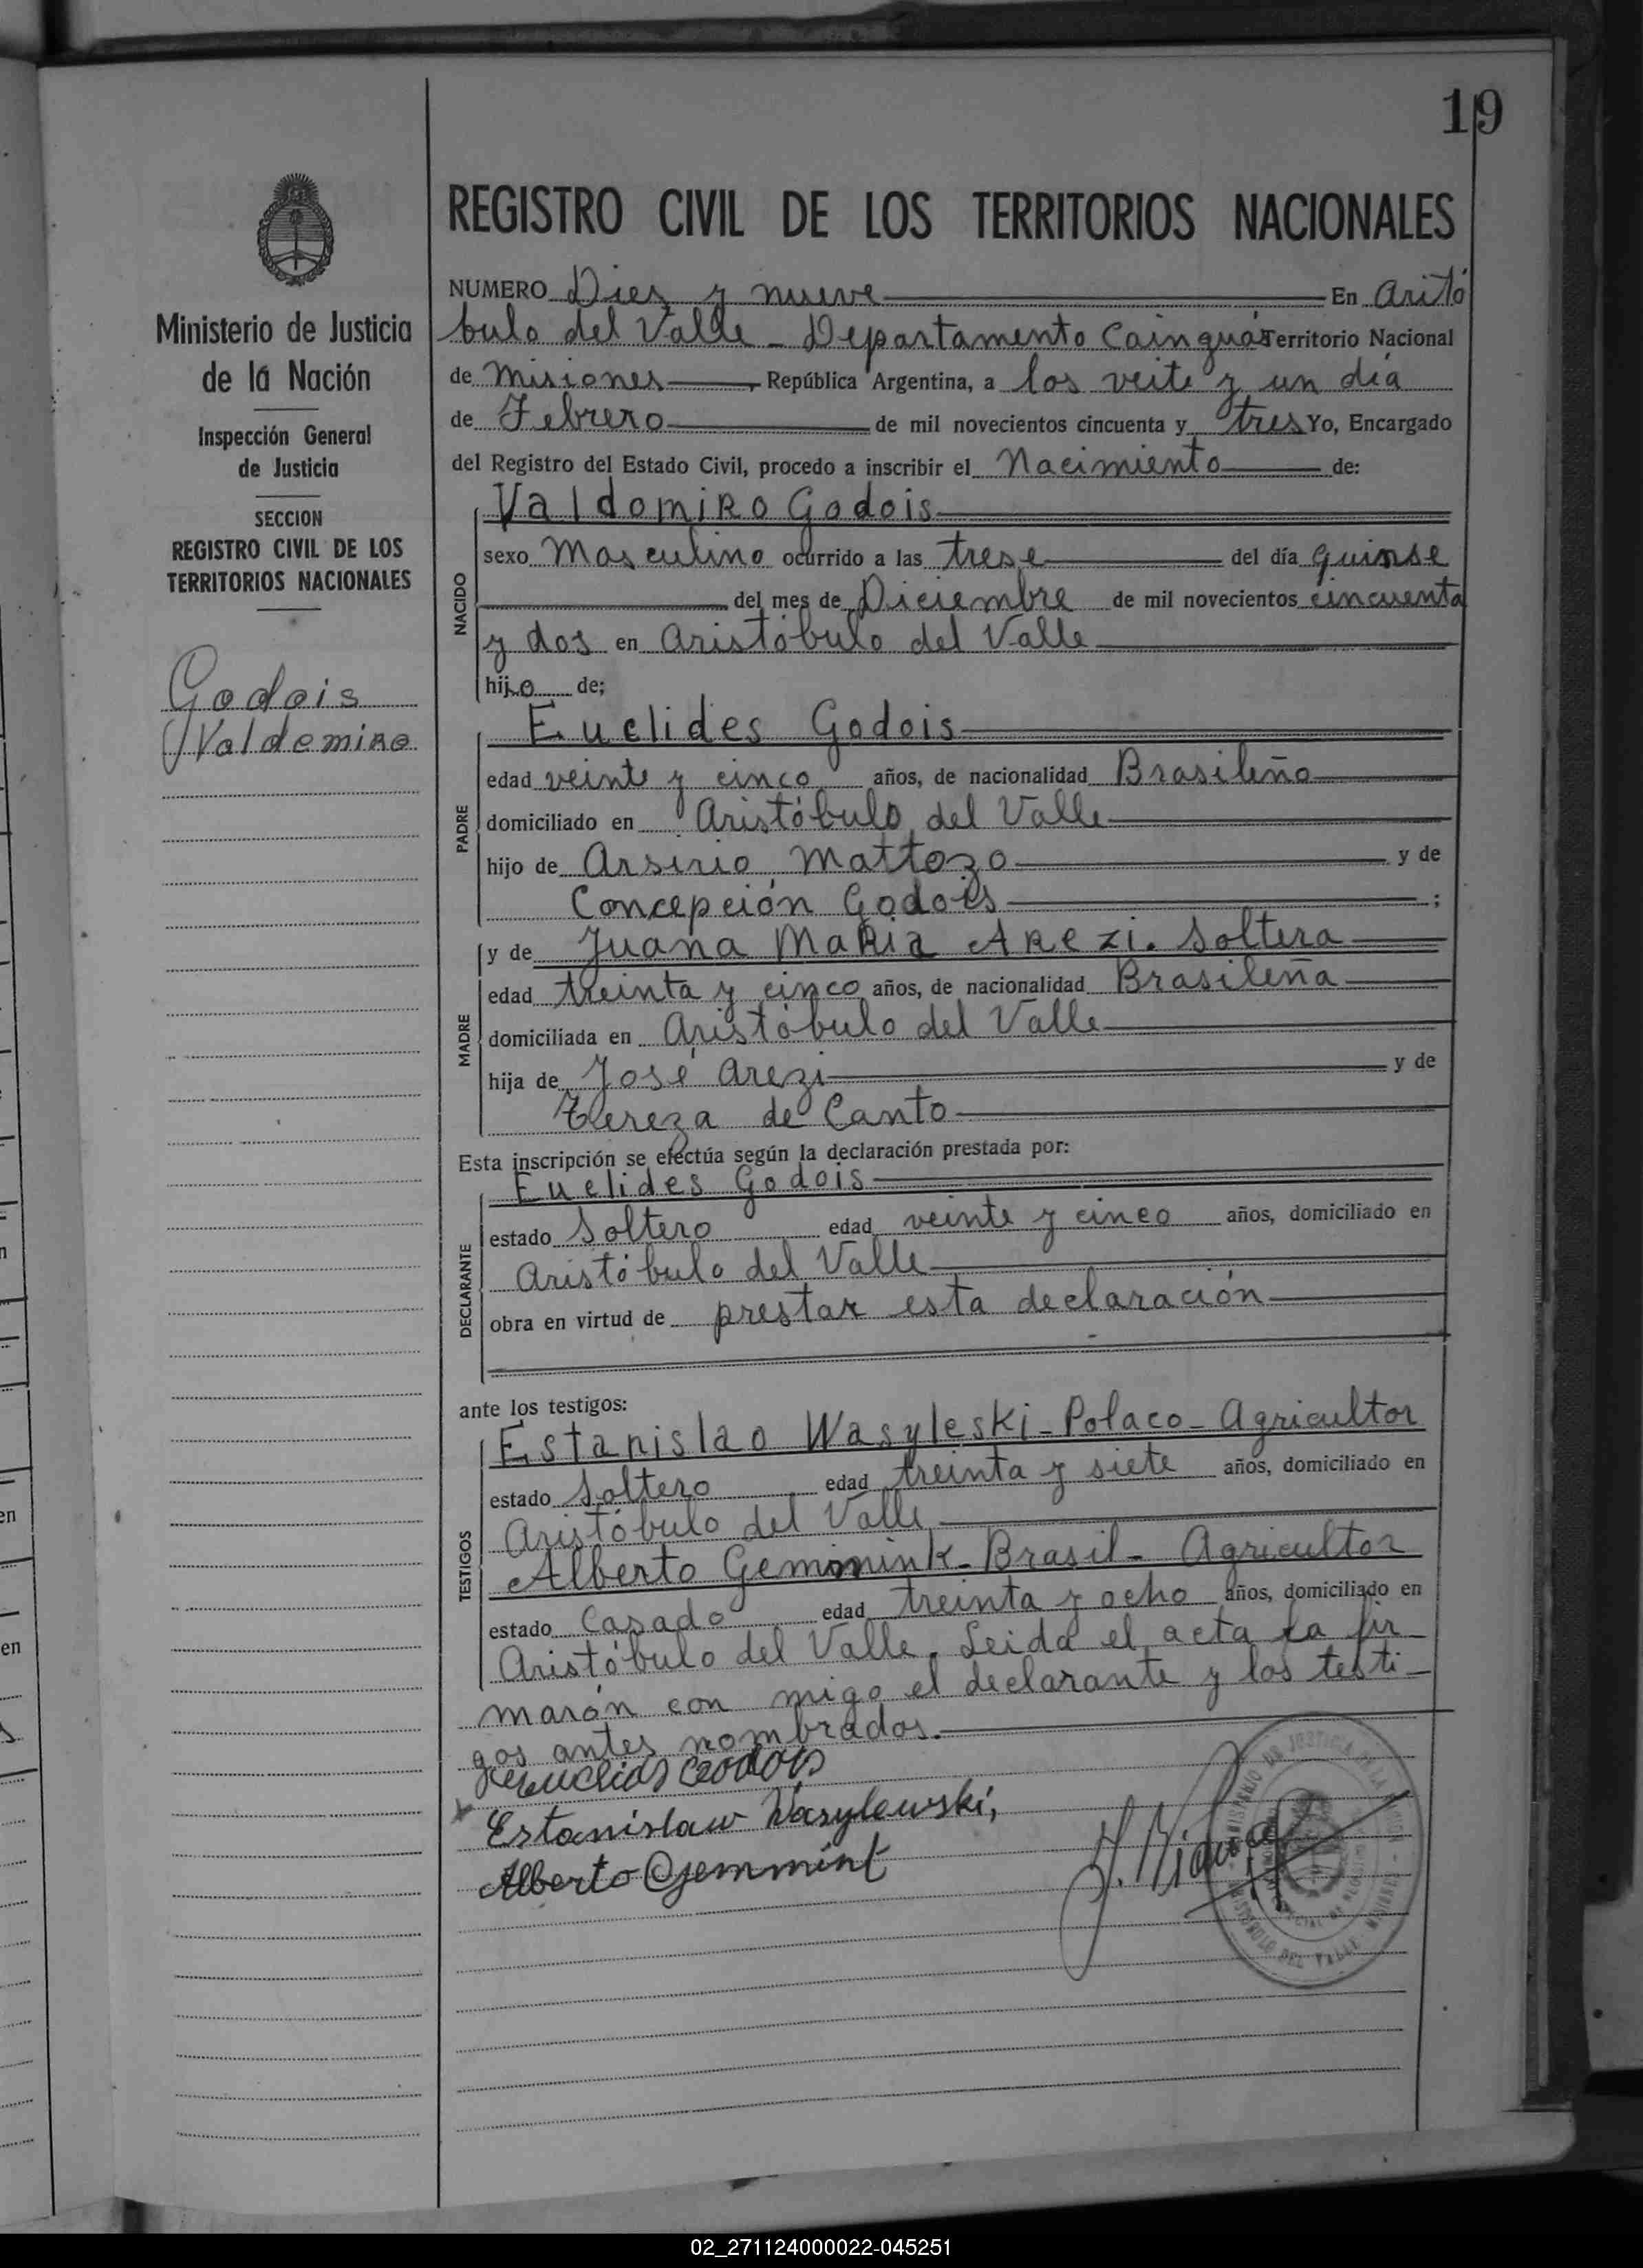 19
REGISTRO CIVIL DE LOS TERRITORIOS NACIONALES
Ministerio de Justicia
de la Nación
Inspección General
de Justicia
SECCION
REGISTRO CIVIL DE LOS
TERRITORIOS NACIONALES
Godois
Valdemiro
NUMERO Dies y nueve En Aritó
bulo del Valle - Departamento Cainguás Territorio Nacional
de Misiones, República Argentina, a los veite y un día
de Febrero de mil novecientos cincuenta y tres Yo, Encargado
del Registro del Estado Civil, procedo a inscribir el Nacimiento de:
NACIDO
Valdomiro Godois
sexo Masculino ocurrido a las trese del día quinse
del mes de Diciembre de mil novecientos cincuenta
y dos en Aristóbulo del Valle
hijo de;
PADRE
Euclides Godois
edad veinte y cinco años, de nacionalidad Brasileño
domiciliado en Aristóbulo del Valle
hijo de Arsirio Mattozo y de
Concepción Godois ;
MADRE
y de Juana Maria Arezi. Soltera
edad treinta y cinco años, de nacionalidad Brasileña
domiciliada en Aristóbulo del Valle
hija de José Arezi y de
Tereza de Canto
Esta inscripción se efectúa según la declaración prestada por:
DECLARANTE
Euclides Godois
estado Soltero edad veinte y cinco años, domiciliado en
Aristóbulo del Valle
obra en virtud de prestar esta declaración
ante los testigos:
TESTIGOS
Estanislao Wasyleski - Polaco - Agricultor
estado Soltero edad treinta y siete años, domiciliado en
Aristóbulo del Valle
Alberto Gemmink - Brasil - Agricultor
estado Casado edad treinta y ocho años, domiciliado en
Aristóbulo del Valle. Leida el acta la fir-
marón con migo el declarante y los testi-
gos antes nombrados.
Godois
Estanislaw Wasylewski,
Alberto Gemmink
02_271124000022-045251